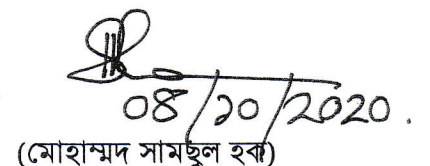 08/১0/2020.
(মোহাম্মদ সামছুল হক)